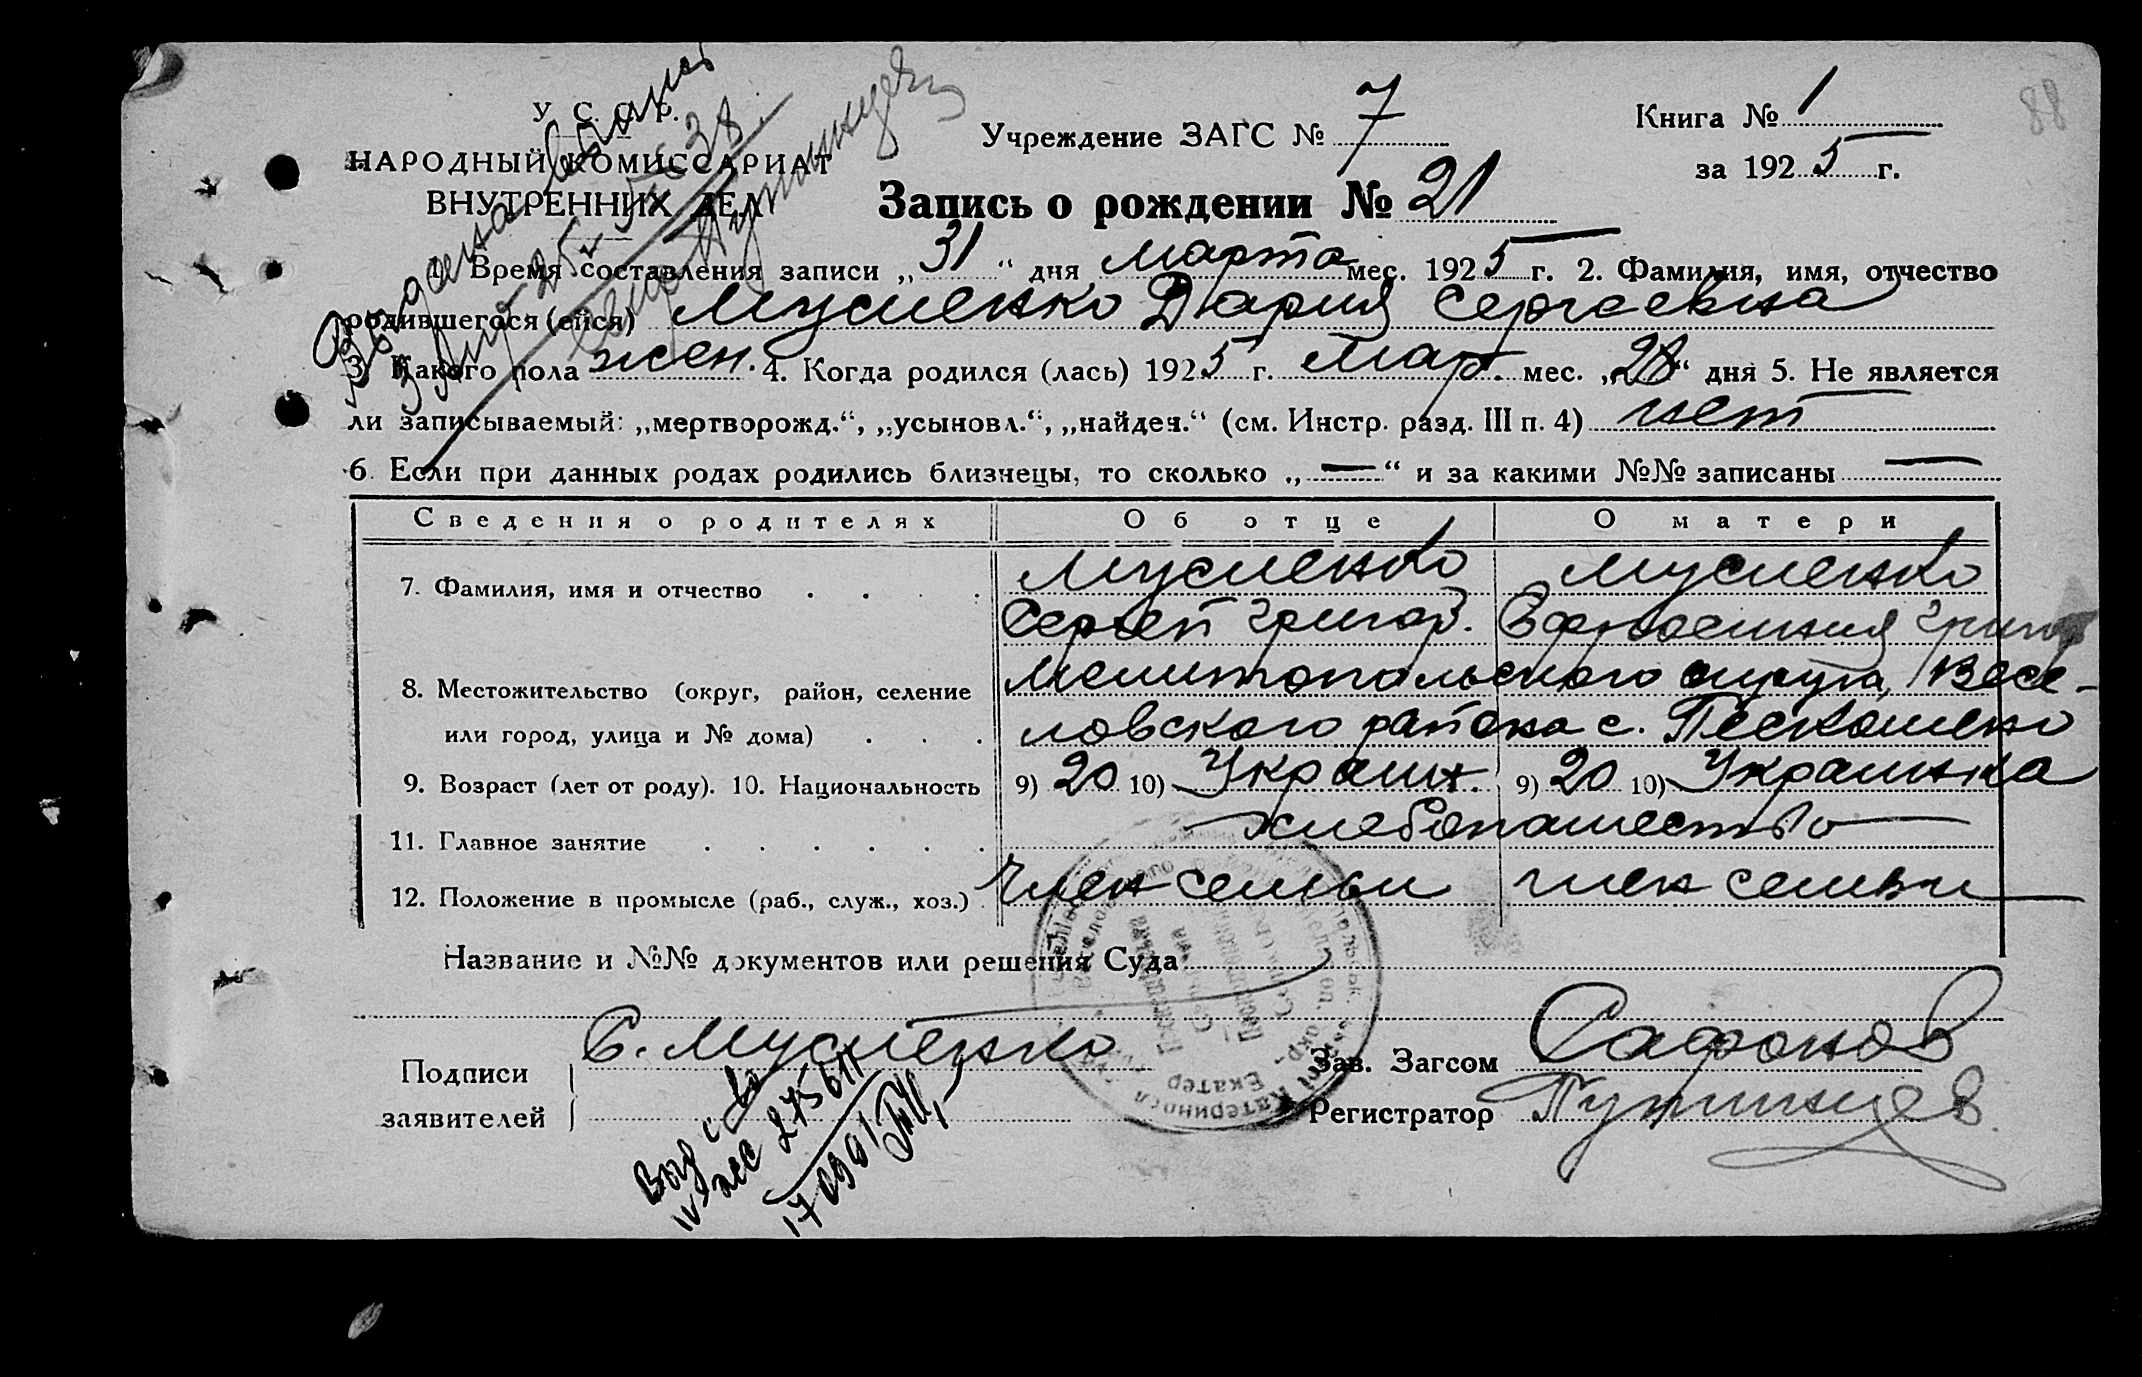 У. С. С. Р.
НАРОДНЫЙ КОМИССАРИАТ
ВНУТРЕННИХ ДЕЛ
Учреждение ЗАГС № 7
Книга № 1
за 1925 г.
88
Запись о рождении № 21
1. Время составления записи „31“ дня Марта мес. 1925 г. 2. Фамилия, имя, отчество
родившегося (ейся) Мусиенко Дария Сергеевна
3. Какого пола жен. 4. Когда родился (лась) 1925 г. Мар. мес. „28“ дня 5. Не является
ли записываемый: „мертворожд.“, „усыновл.“, „найден.“ (см. Инстр. разд. III п. 4) нет
6. Если при данных родах родились близнецы, то сколько „—“ и за какими №№ записаны —
Сведения о родителях Об отце О матери
7. Фамилия, имя и отчество Мусиенко Мусиенко
Сергей Григор.
8. Местожительство (округ, район, селение Мелитопольского округа, Весе-
или город, улица и № дома) ловского района с.
9. Возраст (лет от роду). 10. Национальность 9) 20 10) Украин. 9) 20 10) Украинка
11. Главное занятие хлебопашество
12. Положение в промысле (раб., служ., хоз.) Член семьи член семьи
Название и №№ документов или решения Суда
Подписи заявителей С. Мусиенко
Зав. Загсом Сафонов
Регистратор Путинцев